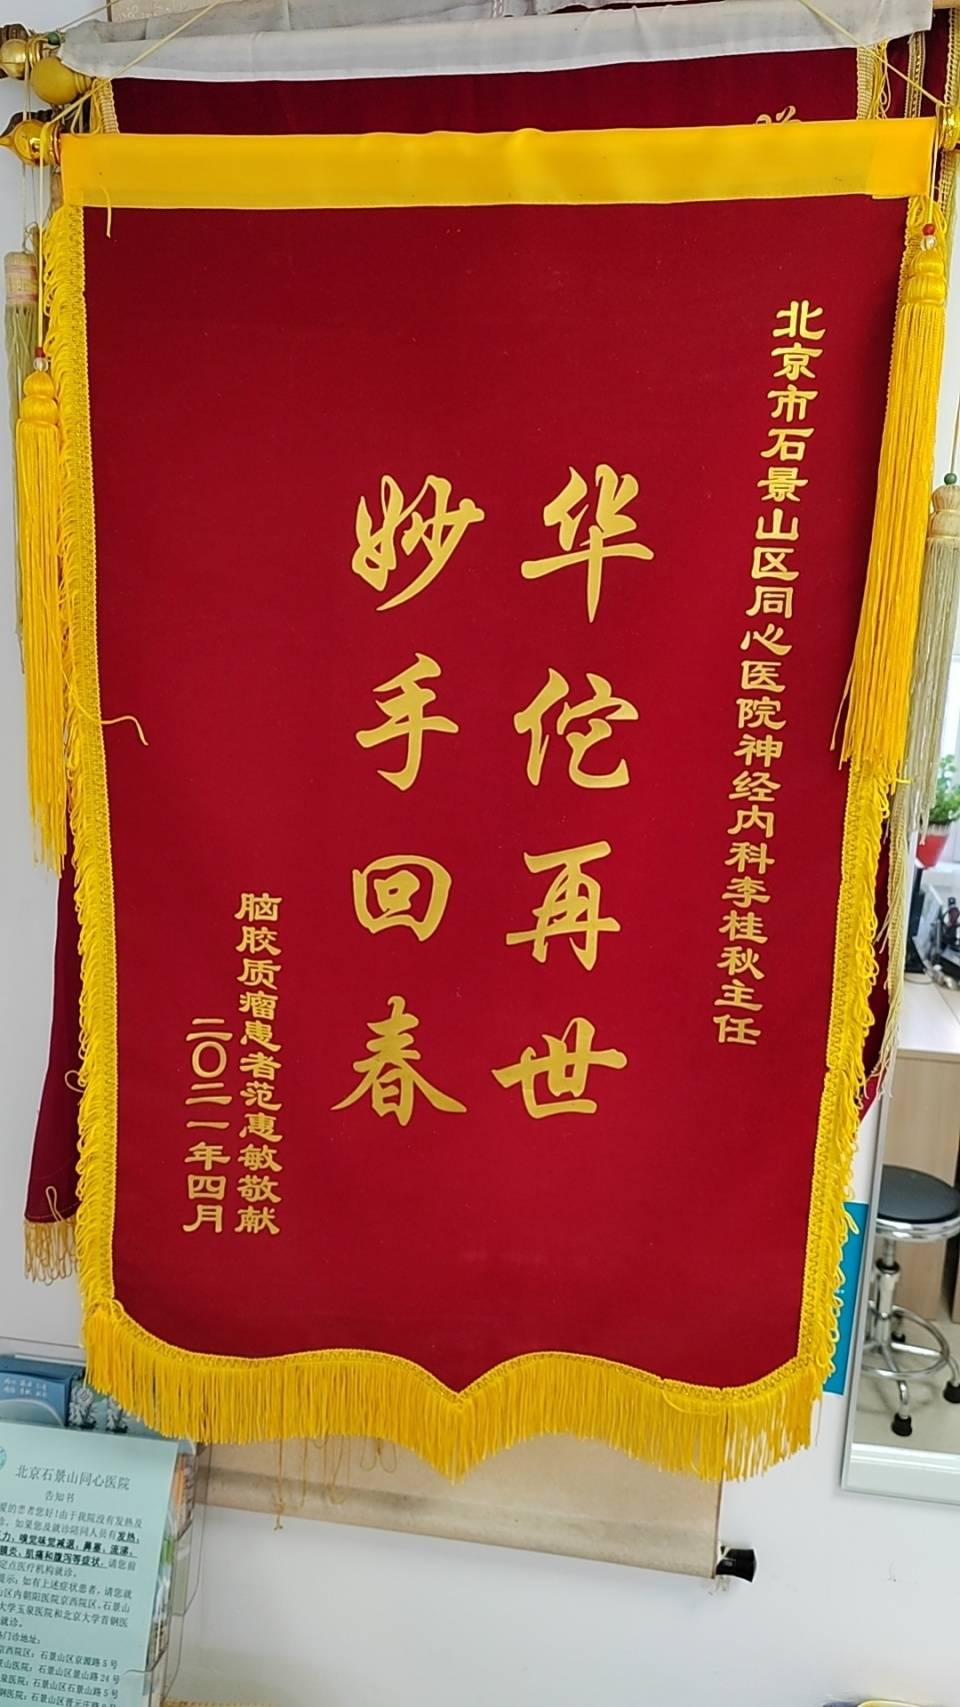 北京市石景山区同心医院神经内科李桂秋主任
华佗再世
妙手回春
脑胶质瘤患者范惠敏敬献
二〇二一年四月
北京石景山同心医院
告知书
爱的患者您好!由于我院没有发热及
诊,如果您及就诊陪同人员有发热,
力,嗅觉味觉减退,鼻塞,流涕,
膜炎,肌痛和腹泻等症状,请您前
定点医疗机构就诊。
提示:如有上述症状患者,请您就
山区内朝阳医院京西院区、石景山
大学玉泉医院和北京大学首钢医
就诊。
门诊地址:
京西院区:石景山区京源路5号
景山医院:石景山区景山路24号
泉医院:石景山区石景山路5号
钢医院:石景山区晋元庄路9号